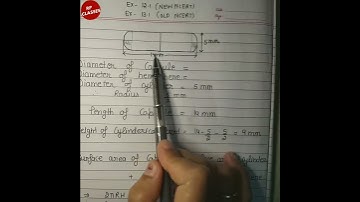 RP CLASSES
EX- 12.1 (NEW NCERT)
EX- 13.1 (OLD NCERT)
5 mm
Diameter of Capsule =
Diameter of hemisphere =
Diameter of = 5 mm
Radius mm
Length of Capsule = 14 mm
Height of Cylinderical = 14 - 5/2 - 5/2 = 9 mm
Surface area of Cylinder
⇒ 2πRH